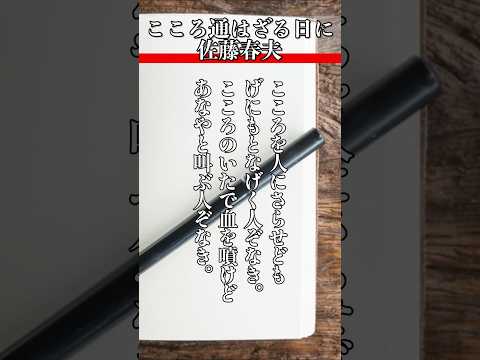 こころ通はざる日に
佐藤春夫
こころを人にさらせども
げにもとなげく人ぞなき。
こころのいたで血を噴けど
あなやと叫ぶ人ぞなき。